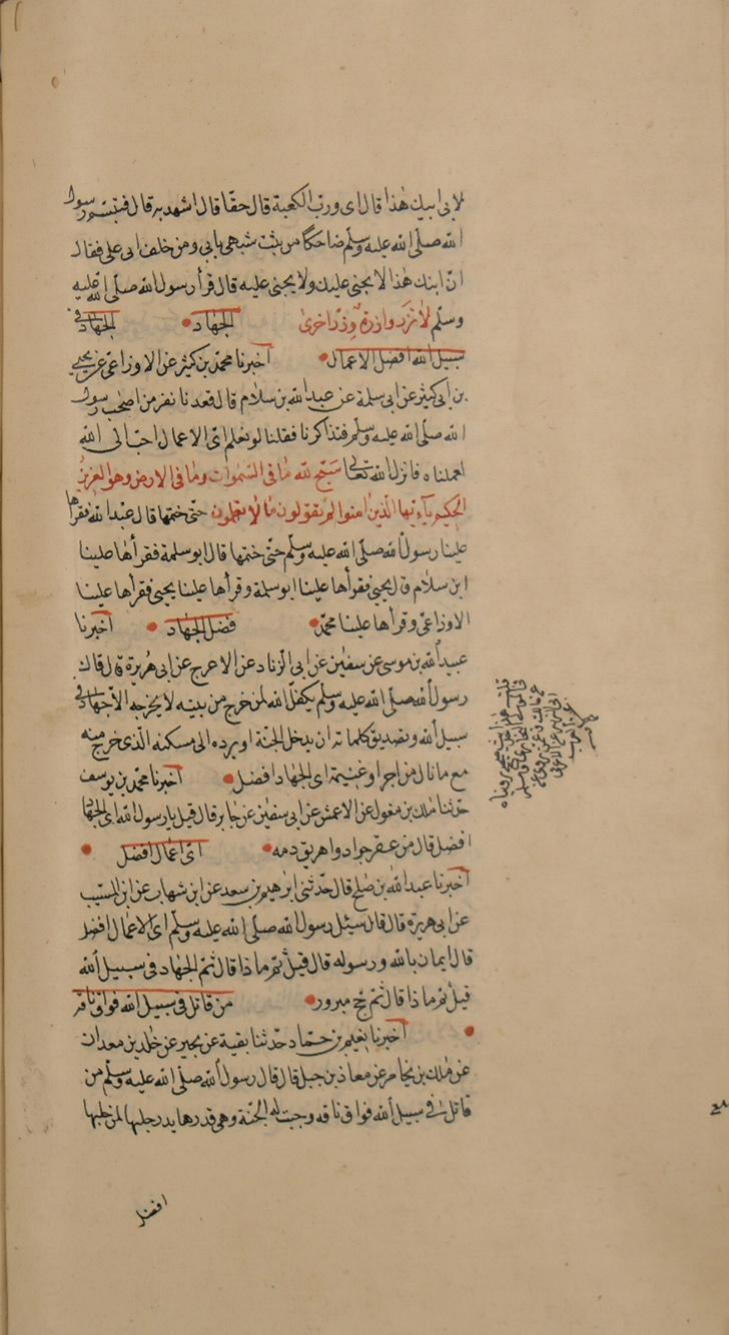 لابى ابنك هذا قال اى ورب الكعبة قال حقا قال اشهد به قال فتبسم رسول
الله صلى الله عليه وسلم ضاحكا من ثبت شبهى بابى ومن خلف ابى على فقال
ان ابنك هذا لا يجنى عليك ولا يجنى عليه قال قرأ رسول الله صلى الله عليه
وسلم لا تزر وازرة وزر اخرى الجهاد الجهاد فى
سبيل الله افضل الاعمال اخبرنا محمد بن كثير عن الاوزاعى عن يحيى
بن ابى كثير عن ابى سلمة عن عبد الله بن سلام قال قعدنا نفر من اصحاب رسول
الله صلى الله عليه وسلم فتذاكرنا فقلنا لو نعلم اى الاعمال احب الى الله
لعملناه فانزل الله تعالى سبح لله ما فى السموات وما فى الارض وهو العزيز
الحكيم يآءيها الذين امنوا لم تقولون ما لا تفعلون حتى ختمها قال عبد الله فقرأها
علينا رسول الله صلى الله عليه وسلم حتى ختمها قال ابو سلمة فقرأها علينا
ابن سلام قال يحيى فقرأها علينا ابو سلمة وقرأها علينا يحيى فقرأها علينا
الاوزاعى وقرأها علينا محمد فضل الجهاد اخبرنا
عبيد الله بن موسى عن سفين عن ابى الزناد عن الاعرج عن ابى هريرة قال قال
رسول الله صلى الله عليه وسلم تكفل الله لمن خرج من بيته لا يخرجه الا جهاد فى
سبيل الله وتصديق كلماته ان يدخل الجنة او يرده الى مسكنه الذى خرج منه
مع ما نال من اجر او غنيمة اى الجهاد افضل اخبرنا محمد بن يوسف
حدثنا ملك بن مغول عن الاعمش عن ابى سفين عن جابر قال قيل يا رسول الله اى الجهاد
افضل قال من عقر جواده واهريق دمه اى الاعمال افضل
اخبرنا عبد الله بن صلح قال حدثنى ابرهيم بن سعد عن ابن شهاب عن ابن المسيب
عن ابى هريرة قال قال سئل رسول الله صلى الله عليه وسلم اى الاعمال افضل
قال ايمان بالله ورسوله قال قيل ثم ماذا قال ثم الجهاد فى سبيل الله
قيل ثم ماذا قال ثم حج مبرور من قاتل فى سبيل الله فواق ناقة
اخبرنا نعيم بن حماد حدثنا بقية عن بجير عن خلد بن معدان
عن ملك بن يخامر عن معاذ بن جبل قال قال رسول الله صلى الله عليه وسلم من
قاتل فى سبيل الله فواق ناقة وجبت له الجنة وهى قدر ما يدر حلبها لمن حلبها
افضل